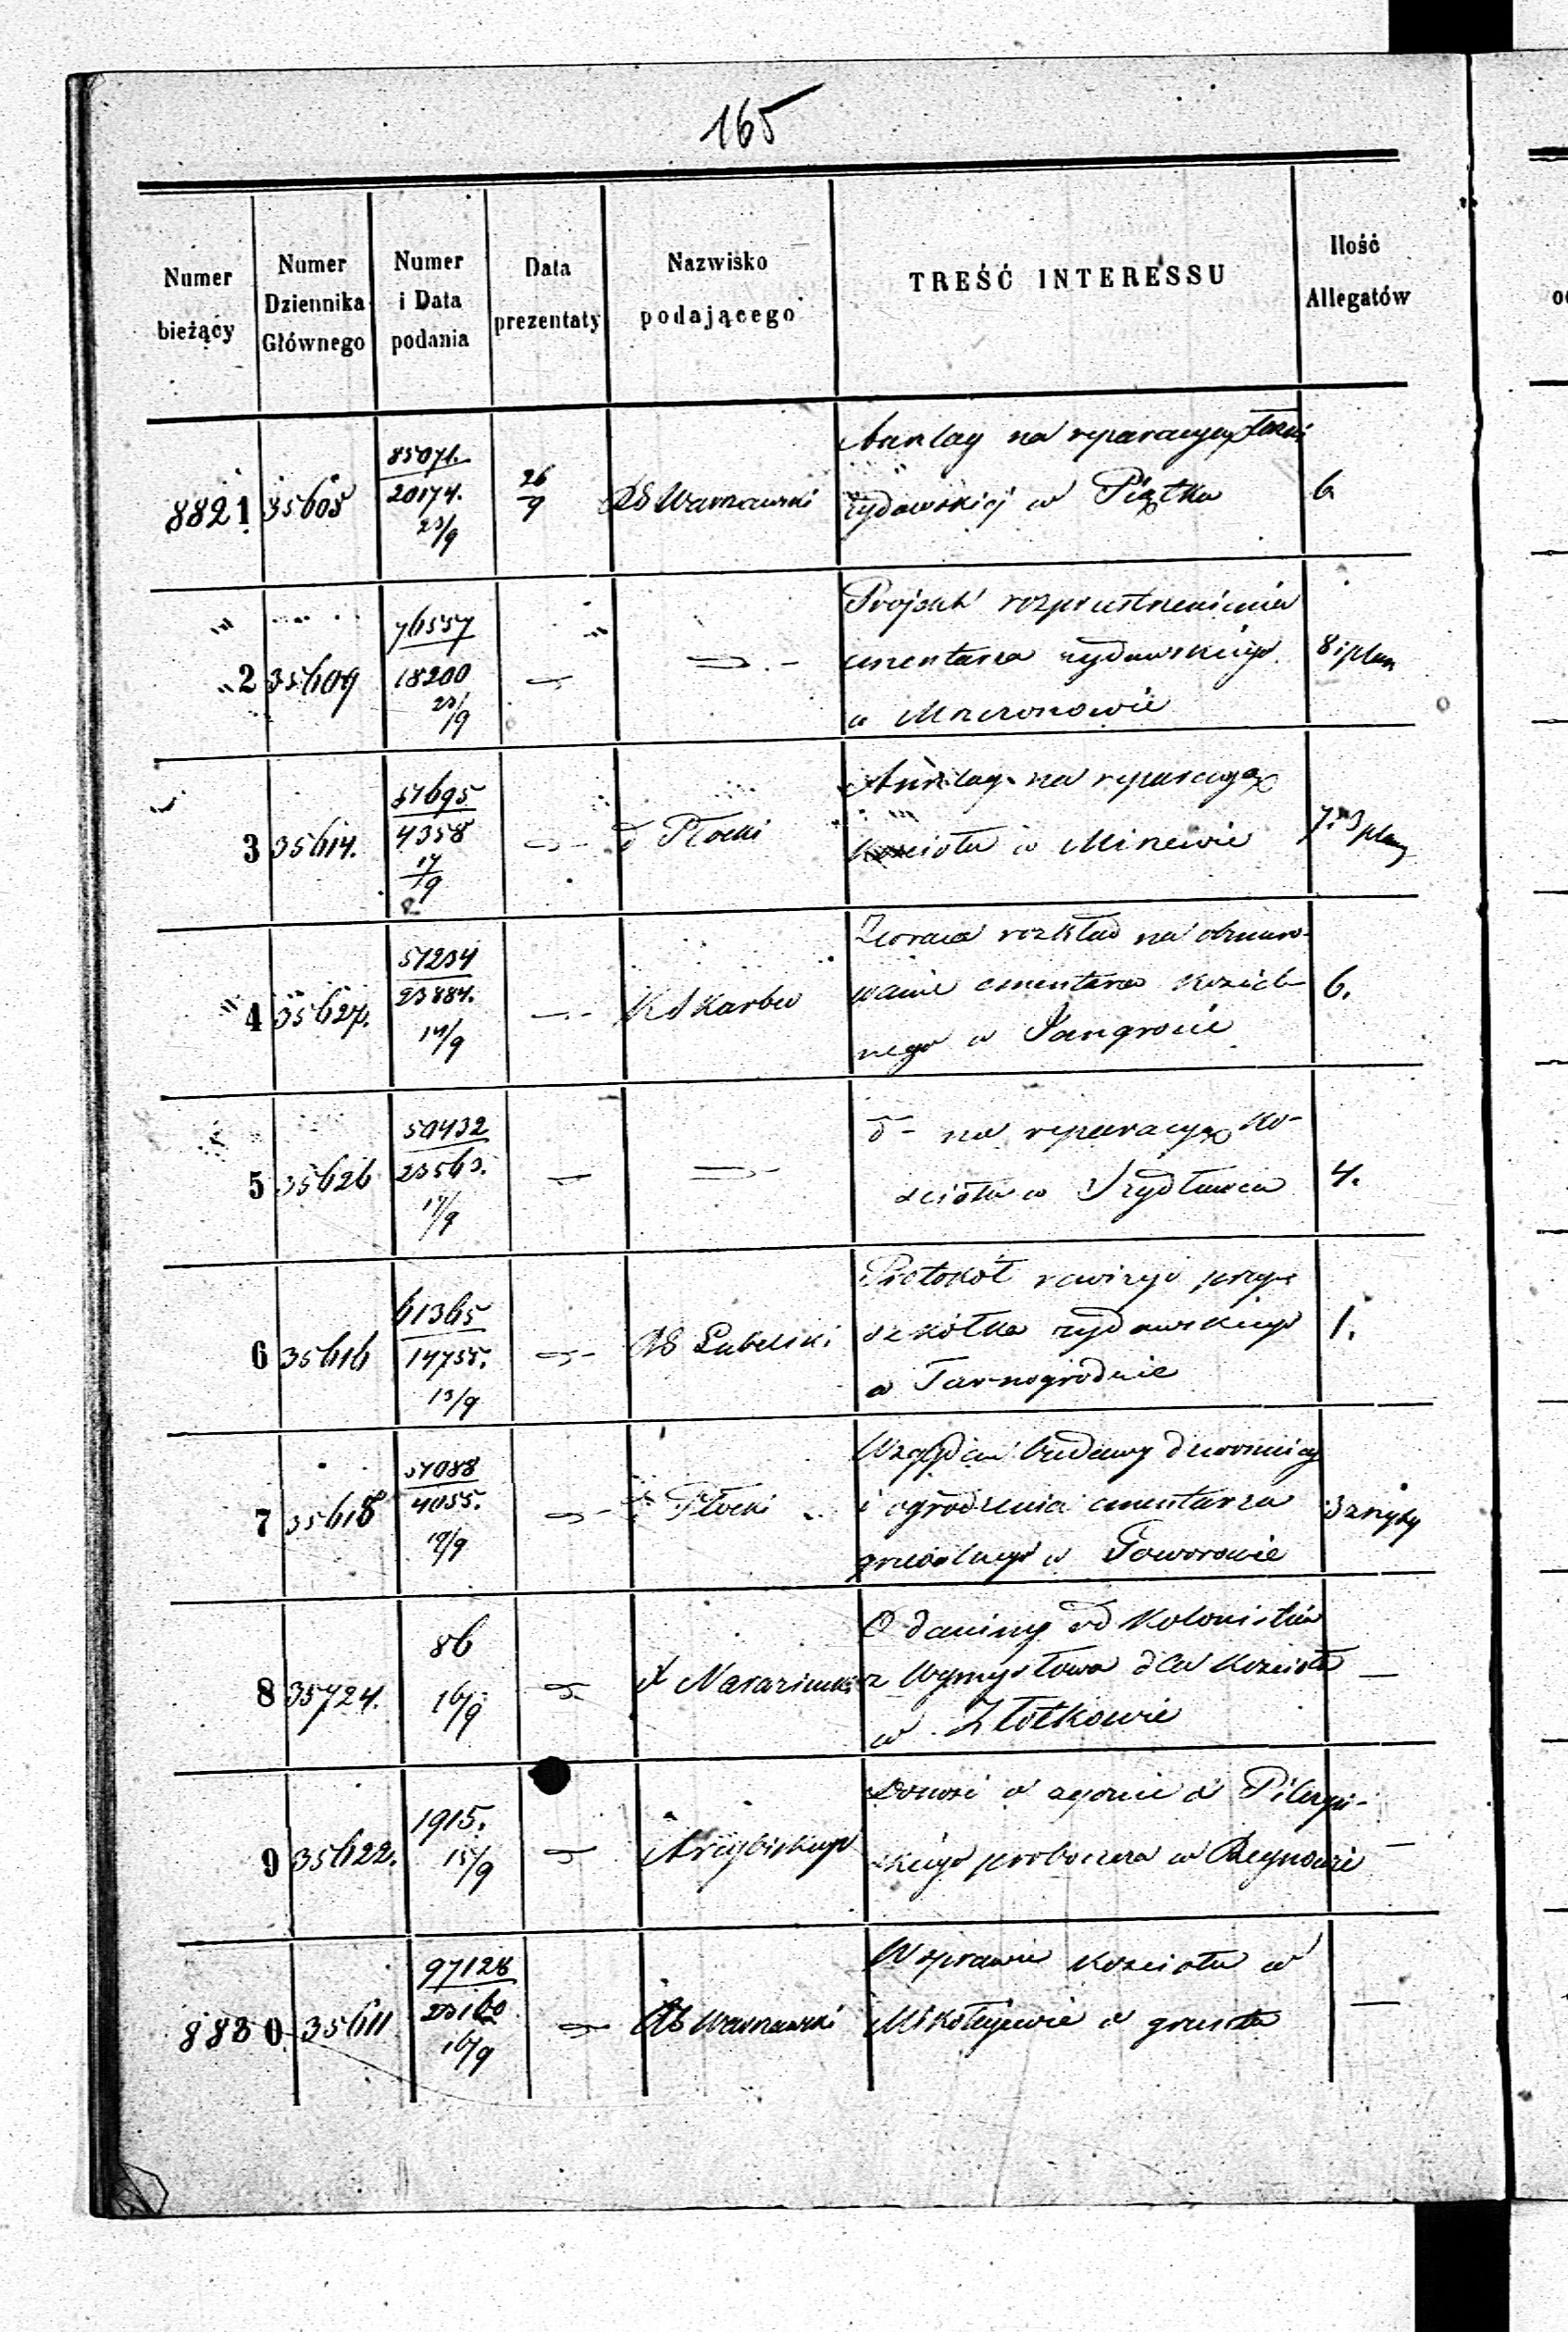 165
Numer bieżący | Numer Dziennika Głównego | Numer i Data podania | Data prezentaty | Nazwisko podającego | TREŚĆ INTERESSU | Ilość Allegatów
8821 | 35605 | 85071. / 20174. 23/9 | 26/9 | RG Warszawski | Anszlag na reparacyą Łaźni
żydowskiej w Piątku | 6
2 | 35609 | 76557 / 18200 23/9 | — | — | Projekt rozprzestrzenienia
cmentarza żydowskiego
w Mszczonowie | 8 i plan
3 | 35614. | 57695 / 4358 17/9 | — | d Płocki | Anszlag na reparacyą
kościoła w Minewie | 7. 3 plany
4 | 35627. | 51234 / 23884. 14/9 | — | K S Karbu | Zwraca rozkład na obmuro-
wanie cmentarza kościel-
nego w Jangrocie | 6.
5 | 35626 | 50432 / 23563. 17/9 | — | — | d- na reparacyą ko-
ścioła w Szydłowcu | 4.
6 | 35616 | 61365 / 14755. 13/9 | — | RG Lubelski | Protokół rewizyi przy
szkółka żydowskiego
w Tarnogrodzie | 1.
7 | 35618 | 51088 / 4055. 19/9 | — | Płocki | Względem budowy dzwonnicy
i ogrodzenia cmentarza
grzebalnego w Goworowie | 3 zszyty
8 | 35724. | 86 16/9 | — | X | O daniny od Kolonistów
z Wymysłowa dla kościoła
w Złotkowie | —
9 | 35622. | 1915. 15/9 | — | Arcybiskup | Donosi o zgonie X
proboszcza w | —
8830 | 35611 | 97128 / 23160 16/9 | — | RG Warszawski | W sprawie kościoła w
Mikołajewie o grunta | —